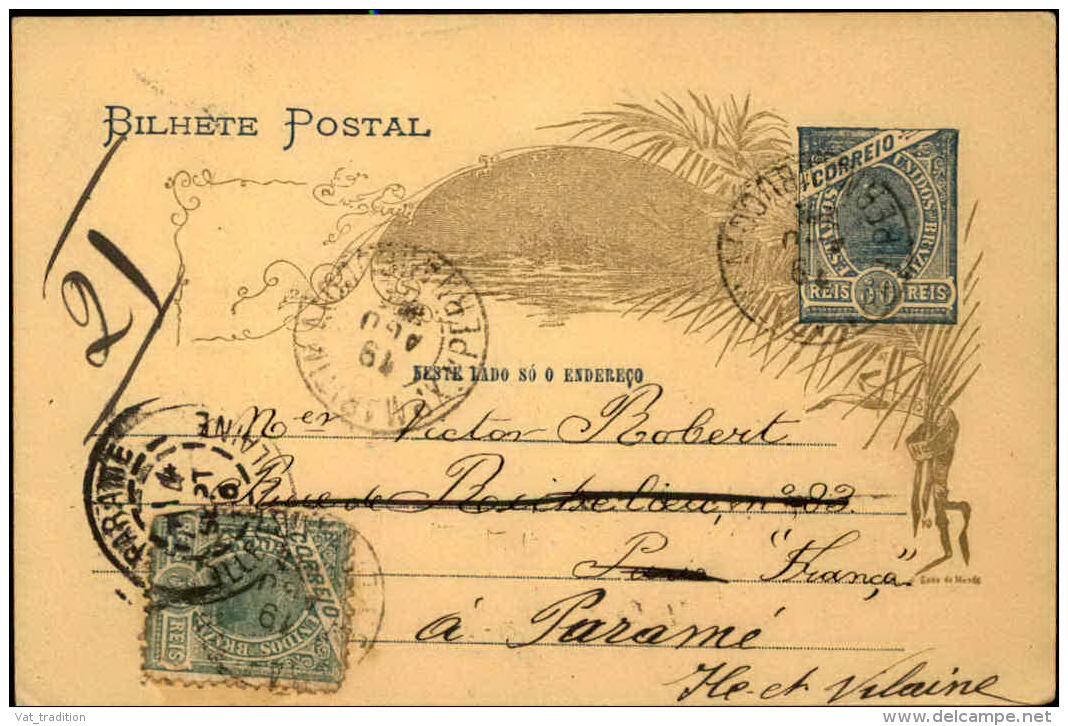 BILHETE POSTAL
CORREIO
ESTADOS UNIDOS DO BRAZIL
REIS 50 REIS
21
NESTE LADO SÓ O ENDEREÇO
19
AGO
Mer Victor Robert
Rue de Richelieu, nº 202.
Paris "França"
à Paramé
Ile-et-Vilaine
PARAMÉ
SEPT
VILAINE
CORREIO
UNIDOS DO BRAZIL
REIS
Vat_tradition
www.delcampe.net